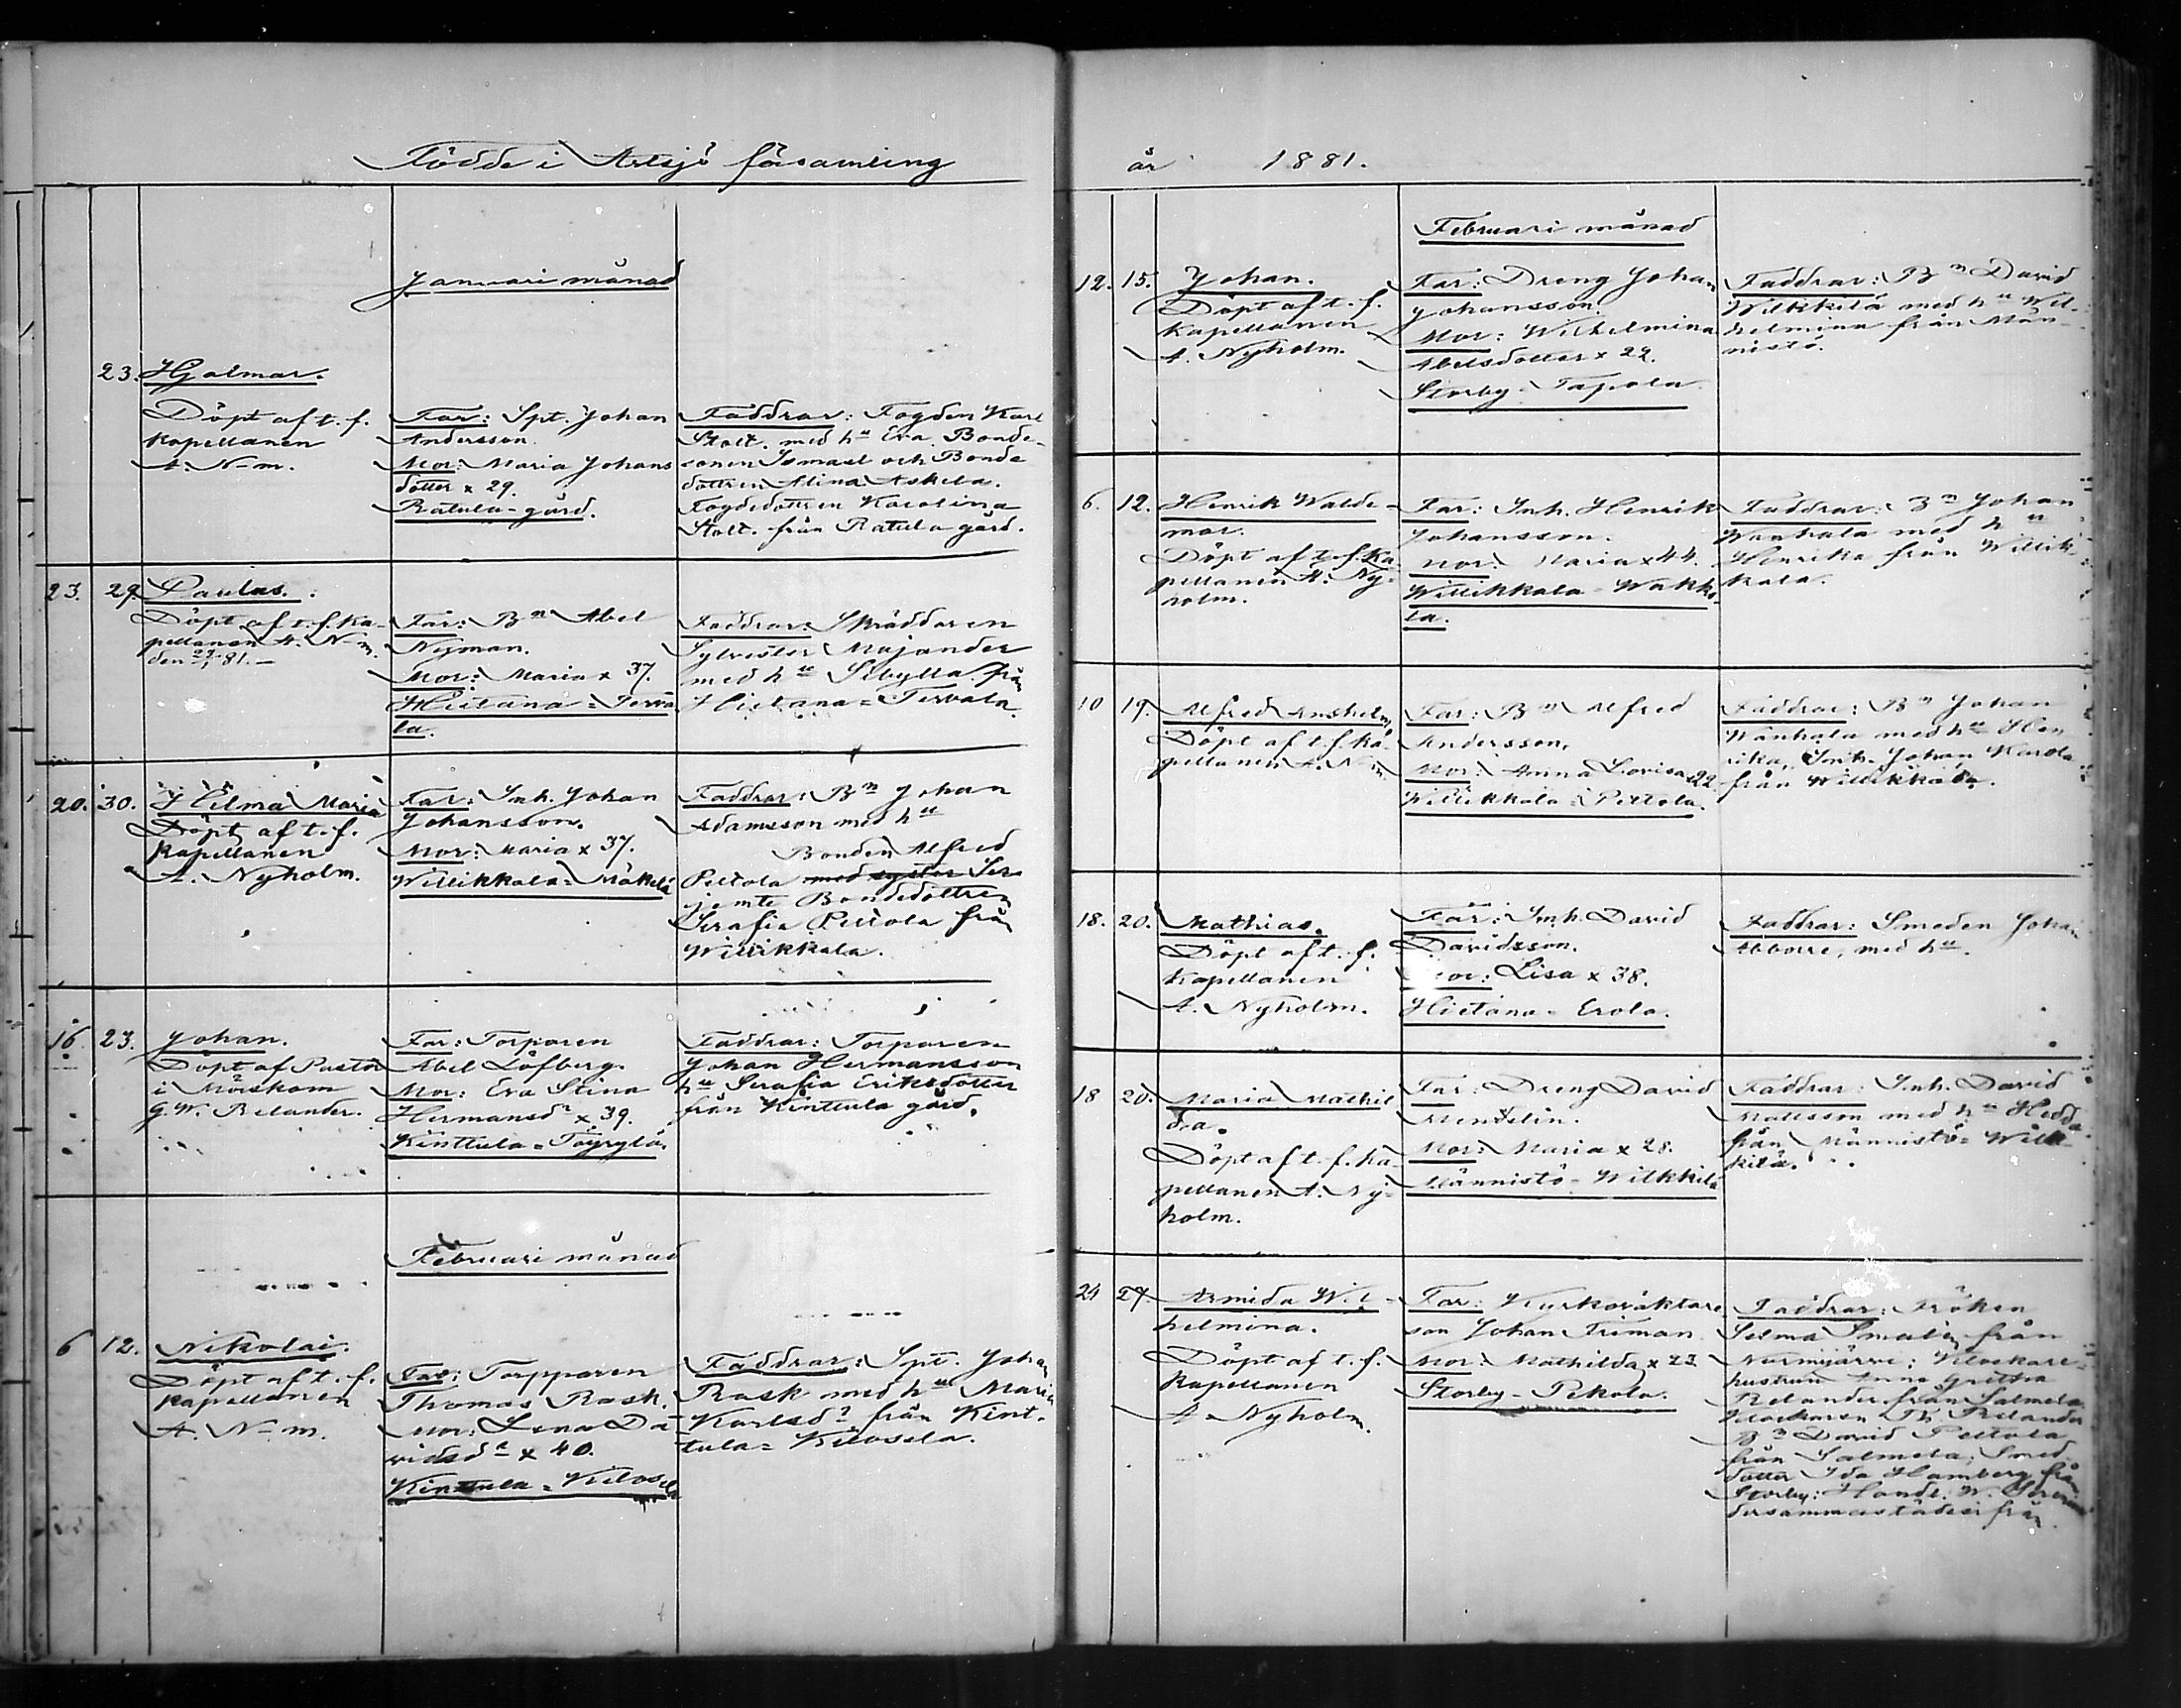 Födde i Artsjö församling
Januari månad
23. Hjalmar.
Döpt af t. f.
Kapellanen
A. N-m.
Far: Spt. Johan
Andersson.
Mor: Maria Johans
dotter x 29.
Ratula-gård.
Faddrar: Fogden Karl
Stolt. med hu Eva. Bonde-
sonen Ismael och Bonde
dottren Alina Askela.
Fogdedottren Karolina
Stolt. från Ratula gård.
23. 29. Paulus.
Döpt af t. f. Ka-
pellanen A. N-m.
den 29/1 81.
Far: Bn Abel
Nyman.
Mor: Maria x 37.
Hietana = Terva
la.
Faddrar: Skräddaren
Sylvester Majander
med hu Sibylla från
Hietana = Tervala
20. 30. Hilma Maria
Döpt af t. f.
Kapellanen
A. Nyholm.
Far: Inh. Johan
Johansson.
Mor: Maria x 37.
Willikkala = Mäkelä
Faddrar: Bn Johan
Adamsson med hu
Bonden Alfred
Peltola med syster Ser
jemte Bondedottren
Serafia Peltola från
Willikkala.
16. 23. Johan.
Döpt af Pastor
i Mörskom
G. W. Relander.
Far: Torparen
Abel Löfberg.
Mor: Eva Stina
Hermansdr x 39.
Kinttula = Töyrylä.
Faddrar: Torparen
Johan Hermansson
hu Serafia Eriksdotter
från Kinttula gård.
Februari månad
6 12. Nikolai.
Döpt af t. f.
Kapellanen
A. N-m.
Far: Torpparen
Thomas Rask.
Mor: Lena Da
vidsdr x 40.
Kinttula = Kilvosela
Faddrar: Spt. Johan
Rask med hu Maria
Karlsdr från Kint-
tula = Kilvosela.
år 1881.
Februari månad
12. 15. Johan.
Döpt af t. f.
Kapellanen
A. Nyholm.
Far: Dreng Johan
Johansson.
Mor: Wilhelmina
Abelsdotter x 22.
Storby - Tapola.
Faddrar: Bn David
Wilkkilä med hu Wil-
helmina från Män-
nistö.
6. 12. Henrik Walde-
mar.
Döpt af t. f. Ka-
pellanen A. Ny-
holm.
Far: Inh. Henrik
Johansson.
Mor: Maria x 44.
Willikkala - Wakko-
la.
Faddrar: Bn Johan
Wanhala med hu
Henrika från Willik-
kala.
10 19. Alfred Anshelm
Döpt af t. f. Ka-
pellanen A. N-m
Far: Bn Alfred
Andersson.
Mor: Anna Lovisa x 22
Willikkala = Peltola.
Faddrar: Bn Johan
Wanhala med hu Hen
rika, Inh. Johan Karola
från Willikkala.
18. 20. Mathias.
Döpt af t. f.
Kapellanen
A. Nyholm.
Far: Inh. David
Davidsson.
Mor: Lisa x 38.
Hietana - Erola.
Faddrar: Smeden Johan
Abborre, med hu.
18 20. Maria Mathil
da.
Döpt af t. f. Ka-
pellanen A. Ny-
holm.
Far: Dreng David
Mendelin.
Mor: Maria x 28.
Männistö - Wilkkilä
Faddrar: Inh. David
Mattsson med hu Hedda
från Männistö = Wilk-
kilä.
24 27. Armida Wil-
helmina.
Döpt af t. f.
Kapellanen
A. Nyholm.
Far: Kyrkoväktare
son Johan Friman
Mor: Mathilda x 23
Storby - Pekola.
Faddrar: Fröken
Selma Smalin från
Nurmijärvi; Klockare-
hustrun Anna Gretha
Relander från Salmela
Klockaren Th. Relander
Bn David Peltola
från Salmela, Smed
dotter Ida Hamberg från
Storby: Handl. W.
dersammastädes ifrån.